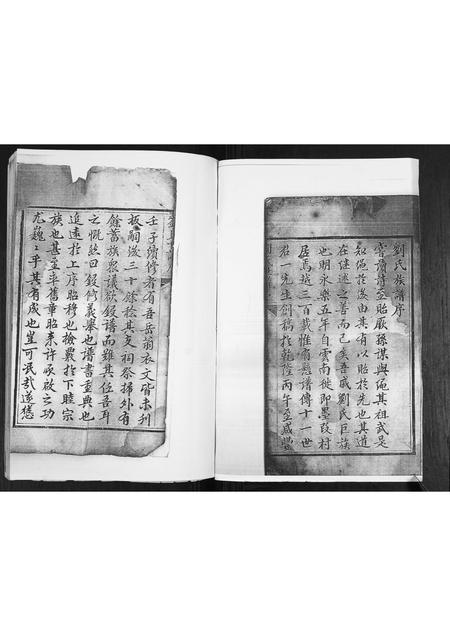 劉氏族譜序
嘗讀詩至貽厥孫謀與繩其祖武是
知繩於後由其有以貽於先也其道
在繼述之善而已矣吾戚劉氏巨族
也明永樂五年自雲南徙即墨段村
居焉越三百載惟有懸譜傳十一世
君一先生創稿於乾隆丙午至咸豐
壬子續修者有吾岳翁衣文皆未刊
板嗣後三十餘稔其支祠祭掃外有
餘蓄族衆議欲鋟譜而難其任吾耳
之慨然曰鋟修義舉也譜書重典也
追遠於上序昭穆也撿叢於下睦宗
族也甚盛率舊章昭來許啟之功
尤巍巍乎其有成也豈可泯哉遂慫